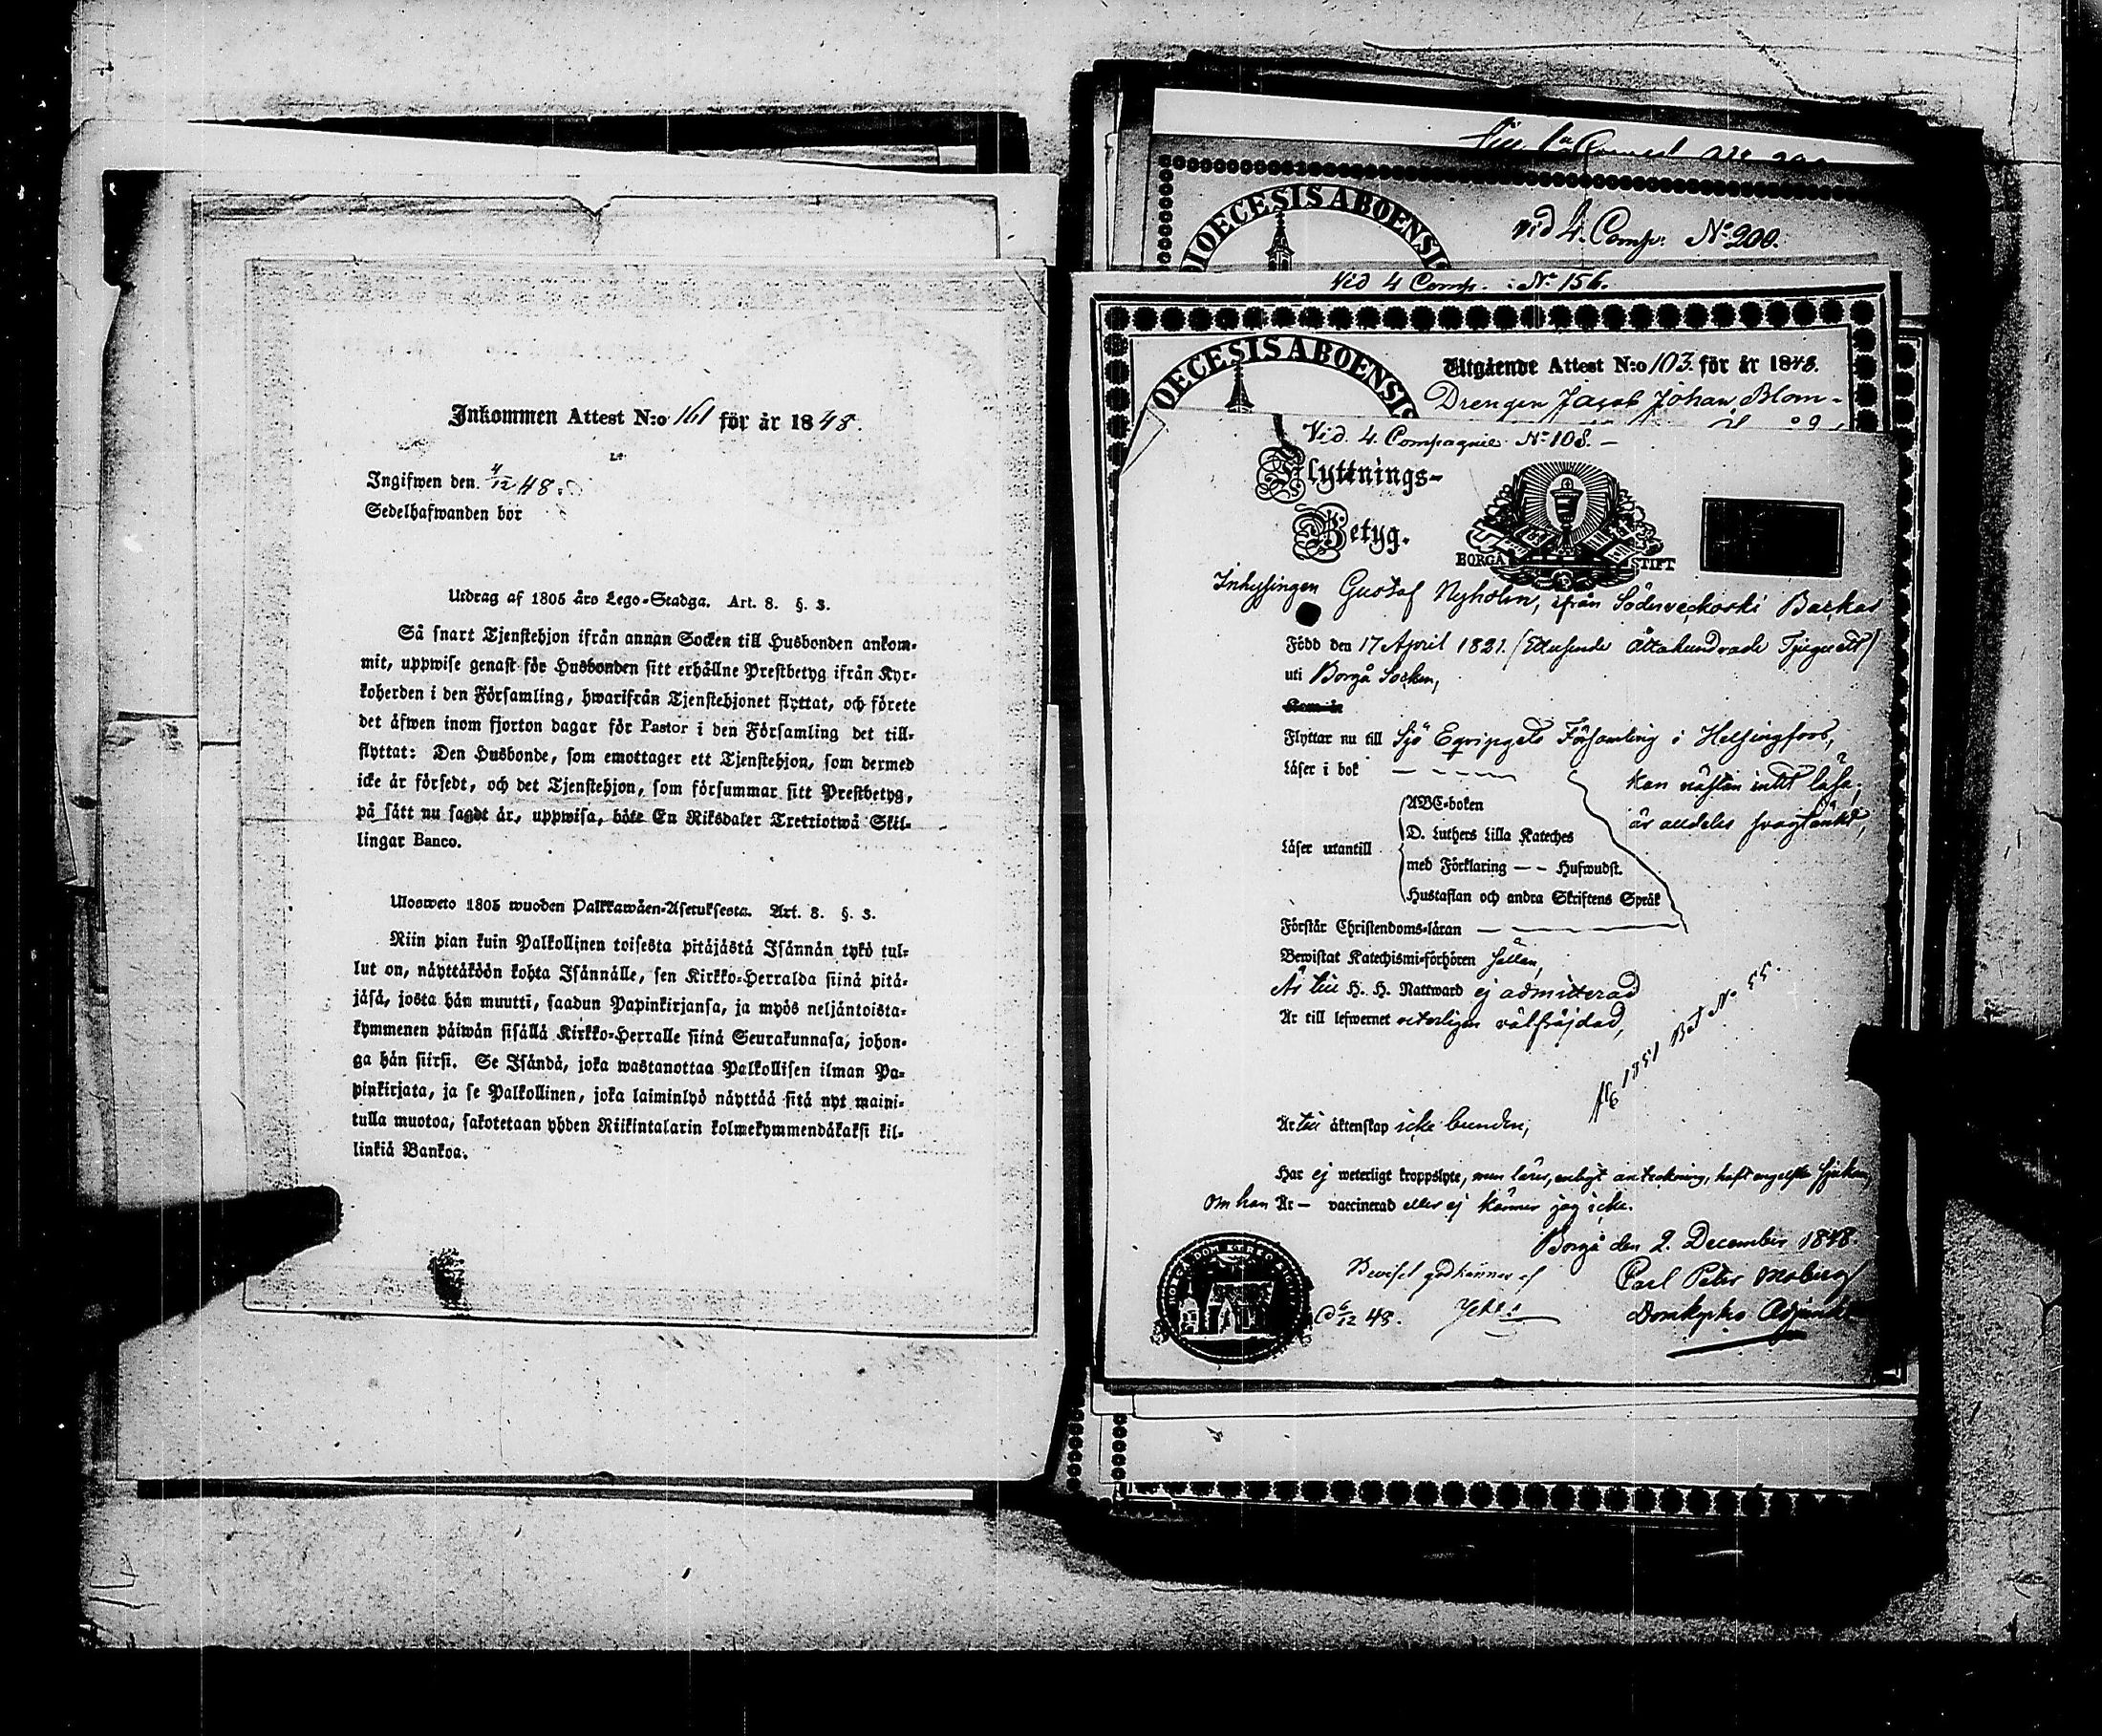 Inkommen Attest N:o 161 för år 1848.
Ingifwen den 4/12 48.
Sedelhafwanden bor
Utdrag af 1805 års Lego-Stadga. Art. 8. §. 3.
Så snart Tjenstehjon ifrån annan Socken till Husbonden ankom-
mit, uppwise genast för Husbonden sitt erhållne Prestbetyg ifrån Kyr-
koherden i den Församling, hwarifrån Tjenstehjonet flyttat, och förete
det äfwen inom fjorton dagar för Pastor i den Församling det till-
flyttat: Den Husbonde, som emottager ett Tjenstehjon, som dermed
icke är försedt, och det Tjenstehjon, som försummar sitt Prestbetyg,
på sätt nu sagdt är, uppwisa, böte En Riksdaler Trettiotwå Skil-
lingar Banco.
Ulosweto 1805 wuoden Palkkawäen-Asetuksesta. Art. 8. §. 3.
Niin pian kuin Palkollinen toisesta pitäjästä Isännän tykö tul-
lut on, näyttäköön kohta Isännälle, sen Kirkko-Herralda siinä pitä-
jäsä, josta hän muutti, saadun Papinkirjansa, ja myös neljäntoista-
kymmenen päiwän sisällä Kirkko-Herralle siinä Seurakunnasa, johon-
ga hän siirsi. Se Isändä, joka wastanottaa Palkollisen ilman Pa-
pinkirjata, ja se Palkollinen, joka laiminlyö näyttää sitä nyt maini-
tulla muotoa, sakotetaan yhden Riikintalarin kolmekymmendäkaksi kil-
linkiä Bankoa.
DIOECESIS ABOENSIS
vid 4. Comp. No 200.
Vid 4 Comp. No 156.
OECESIS ABOENSIS
Utgående Attest N:o 103. för år 1848.
Drengen Jacob Johan Blom-
Vid. 4. Compagnie No 108. –
Flyttnings-
Betyg.
BORGÅ STIFT
Inhysingen Gustaf Nyholm, ifrån Söderveckoski Backas
Född den 17 April 1821. (Ettusende Åttahundrade Tjuguett)
uti Borgå Socken,
Flyttar nu till Sjö Eqvipagets Församling i Helsingfors,
Läser i bok
kan nästan intet läsa;
är alldeles svagtänkt,
ABC-boken
D. Luthers Lilla Kateches
Läser utantill
med Förklaring – – Hufwudst.
Hustaflan och andra Skriftens Språk
Förstår Christendoms-läran
Bewistat Katechismi-förhören sällan,
Är till H. H. Nattward ej admitterad
Är till lefwernet veterligen välfrejdad,
1851 Bet No 55.
Är till äktenskap icke bunden,
Har ej weterligt kroppslyte, men lärer, enligt anteckning, haft engelska sjukan,
Om han Är – vaccinerad eller ej känner jag icke.
Borgå den 2. December 1848
Carl Peter Moberg
Domkyrko Adjunct
Beviset godkännes af
48.